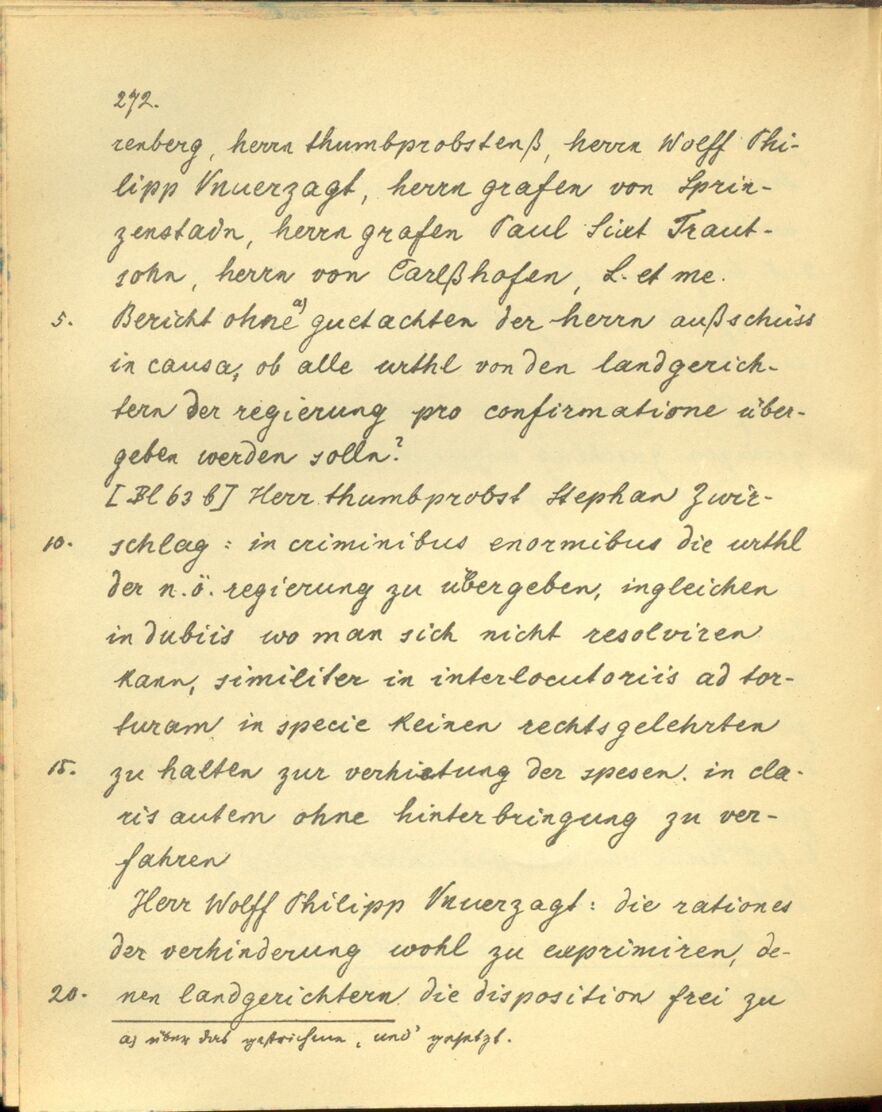 272.
renberg, herrn thumbprobstenß, herrn Wolff Phi-
lipp Vnuerzagt, herrn grafen von Sprin-
zenstain, herrn grafen Paul Sixt Traut-
sohn, herrn von Carlßhofen, L. et me.
5. Bericht ohne a) guetachten der herrn außschüss
in causa, ob alle urthl von den landgerich-
tern der regierung pro confirmatione über-
geben werden solln?
[Bl 63 b] Herr thumbprobst Stephan Zwir-
10. schlag: in criminibus enormibus die urthl
der n. ö. regierung zu übergeben, ingleichen
in dubiis wo man sich nicht resolviren
kann, similiter in interlocutoriis ad tor-
turam in specie keinen rechtsgelehrten
15. zu halten zur verhietung der spesen. in cla-
ris autem ohne hinterbringung zu ver-
fahren
Herr Wolff Philipp Vnuerzagt: die rationes
der verhinderung wohl zu exprimiren, de-
20. nen landgerichtern die disposition frei zu
a) über das gestrichene „und" gesetzt.